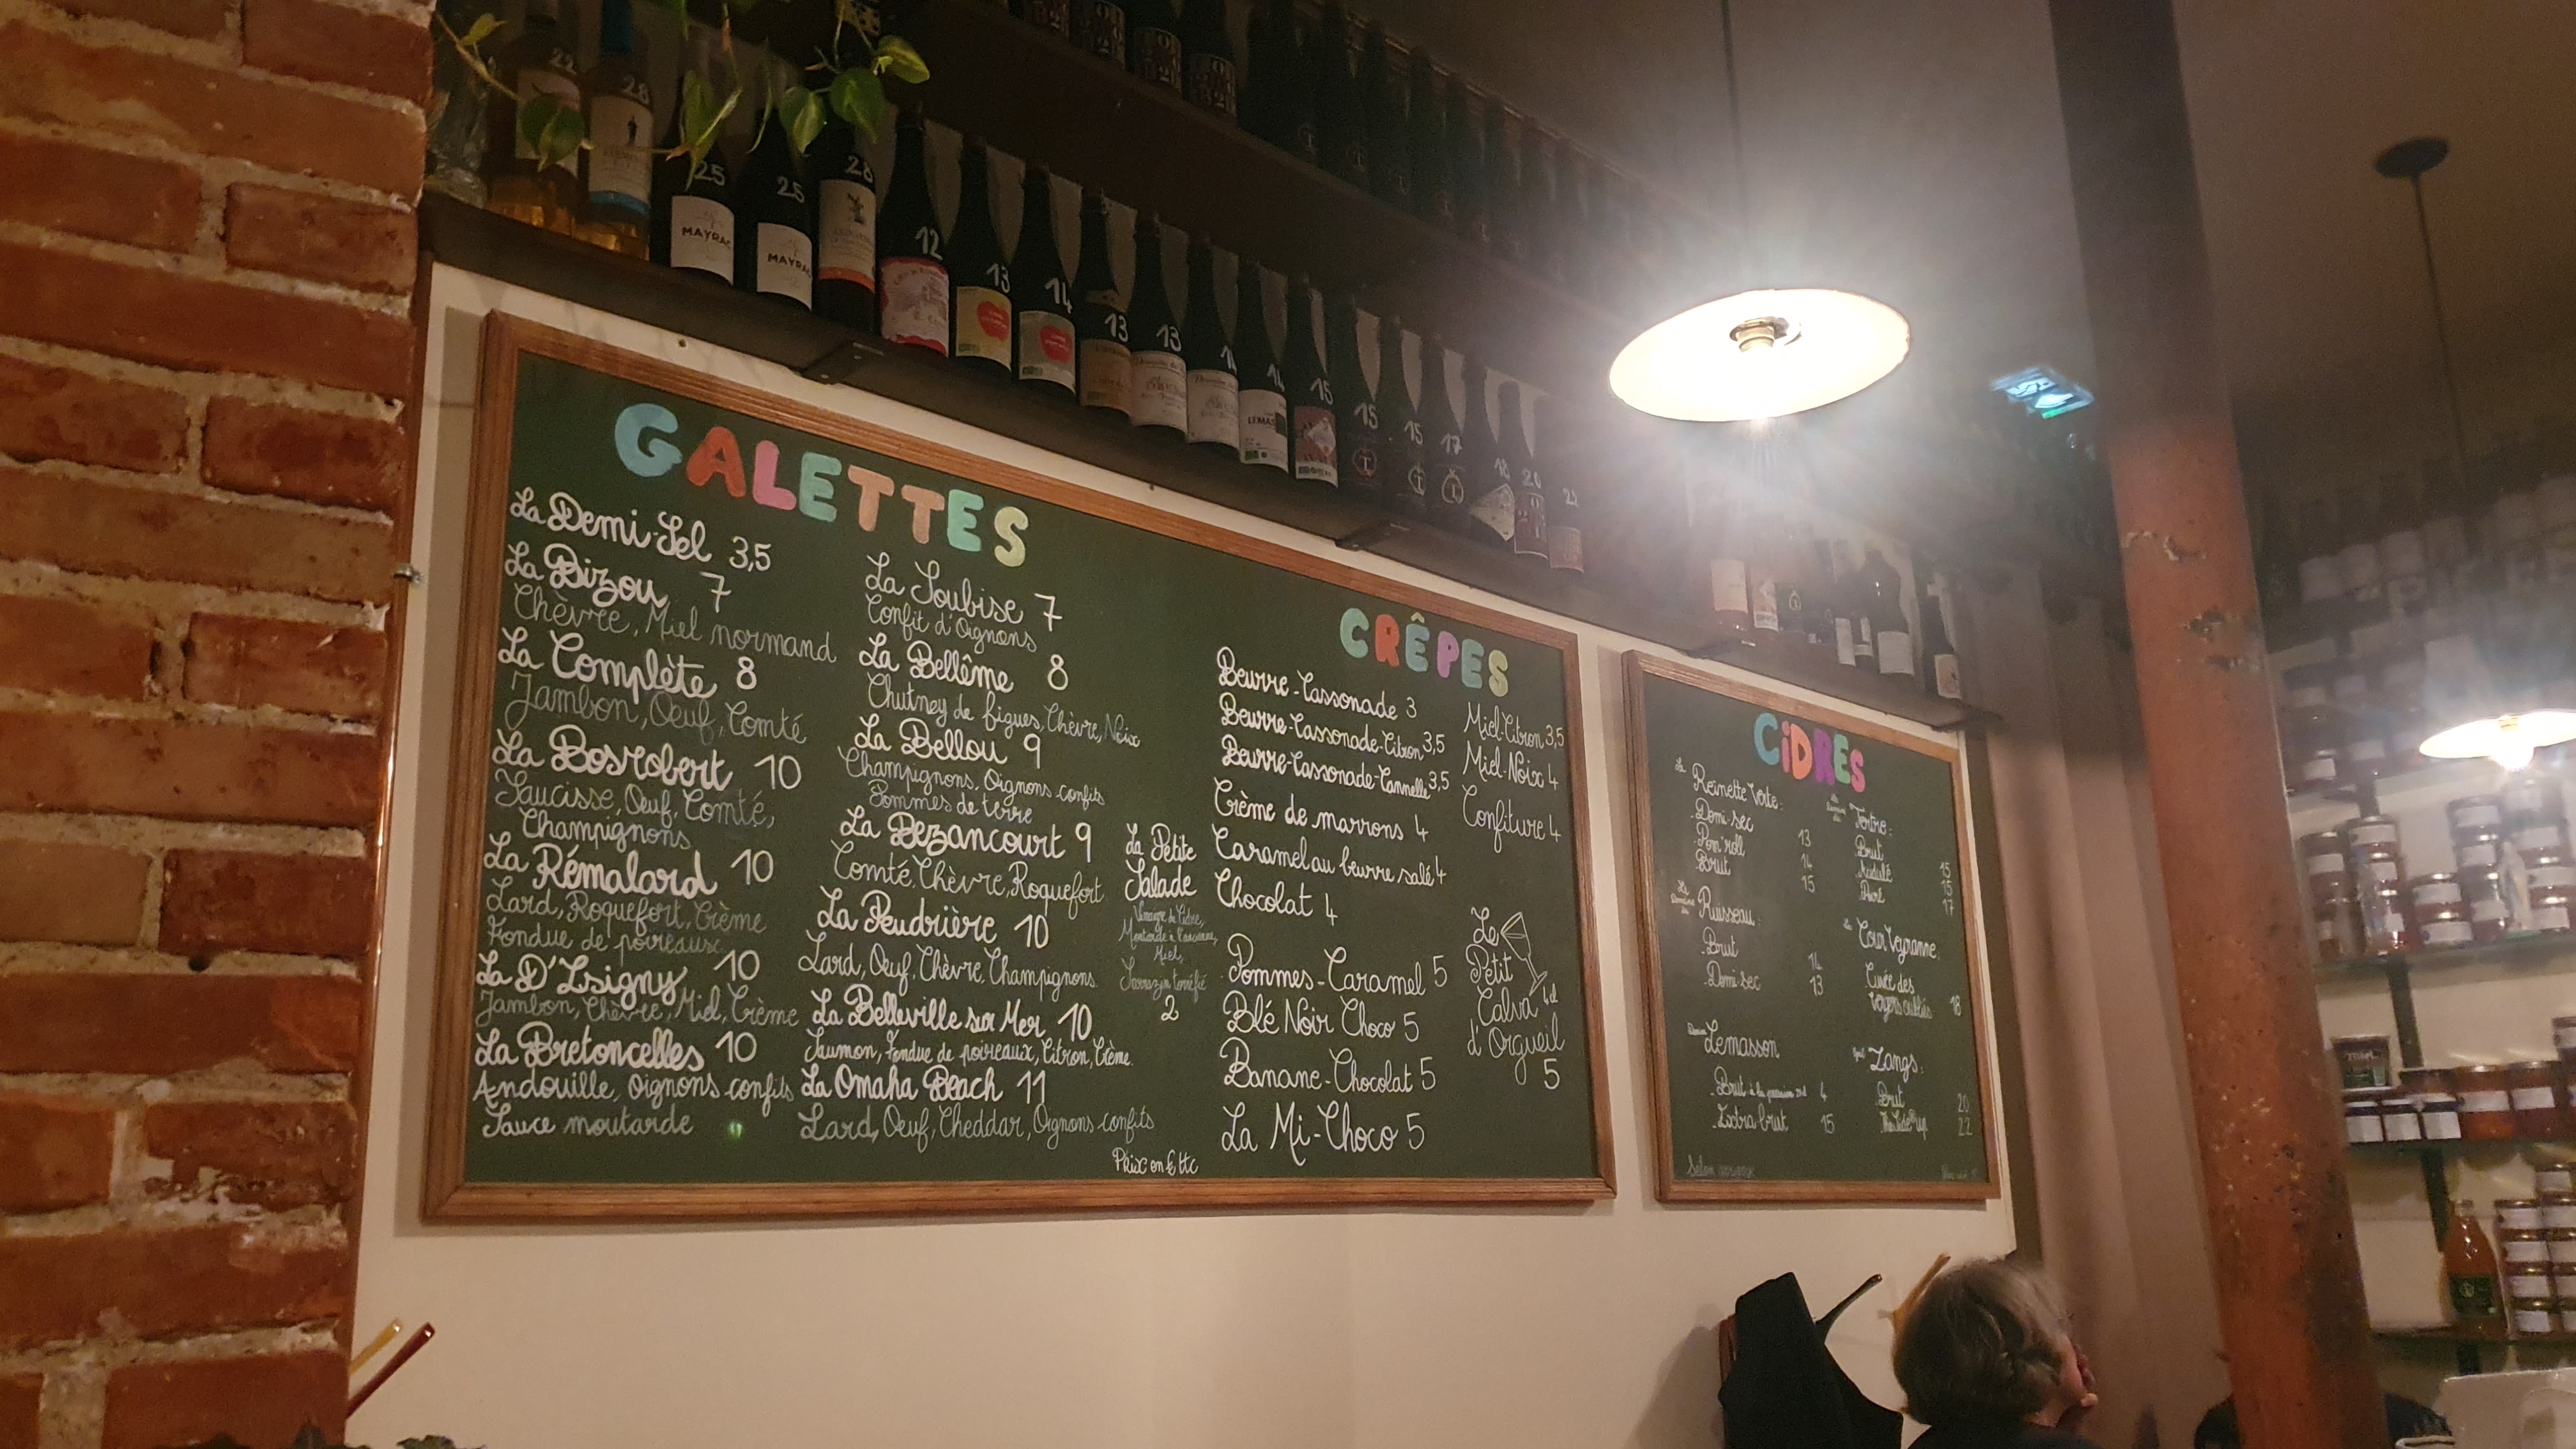 22
28
25
25
28
12
13
14
13
13
14
15
15
15
17
18
20
22
MAYRAC
MAYRAC
LEMAS
GALETTES
La Demi-Sel 3,5
La Bizou 7
Chèvre, Miel normand
La Complète 8
Jambon, Oeuf, Comté
La Bosrobert 10
Saucisse, Oeuf, Comté,
Champignons
La Rémalard 10
Lard, Roquefort, Crème
Fondue de poireaux
La D'Isigny 10
Jambon, Chèvre, Miel, Crème
La Bretoncelles 10
Andouille, Oignons confits
Sauce moutarde
La Soubise 7
Confit d'Oignons
La Bellême 8
Chutney de figues, Chèvre, Noix
La Bellou 9
Champignons, Oignons confits
Pommes de terre
La Bezancourt 9
Comté, Chèvre, Roquefort
La Peudrière 10
Lard, Oeuf, Chèvre, Champignons
La Belleville sur Mer 10
Saumon, Fondue de poireaux, Citron, Crème
La Omaha Beach 11
Lard, Oeuf, Cheddar, Oignons confits
La Petite
Salade
Vinaigre de Cidre,
Moutarde à l'ancienne,
Miel,
Sarrazin torréfié
2
Prix en € ttc
CRÊPES
Beurre-Cassonade 3
Beurre-Cassonade-Citron 3,5
Beurre-Cassonade-Cannelle 3,5
Crème de marrons 4
Caramel au beurre salé 4
Chocolat 4
Pommes-Caramel 5
Blé Noir Choco 5
Banane-Chocolat 5
La Mi-Choco 5
Miel-Citron 3,5
Miel-Noix 4
Confiture 4
Le
Petit
Calva 4cl
d'Orgueil
5
CiDRES
La Reinette Verte:
-Demi-sec 13
-Pom'roll 14
-Brut 15
Le Domaine du Ruisseau:
-Brut 14
-Demi-sec 13
Lemasson
-Brut à la pression 4
-Extra brut 15
Selon arrivage
Le Domaine du Tertre:
Brut 15
Acidulé 15
17
La Cour Veyranne:
Cuvée des
18
Zangs:
Brut 20
22